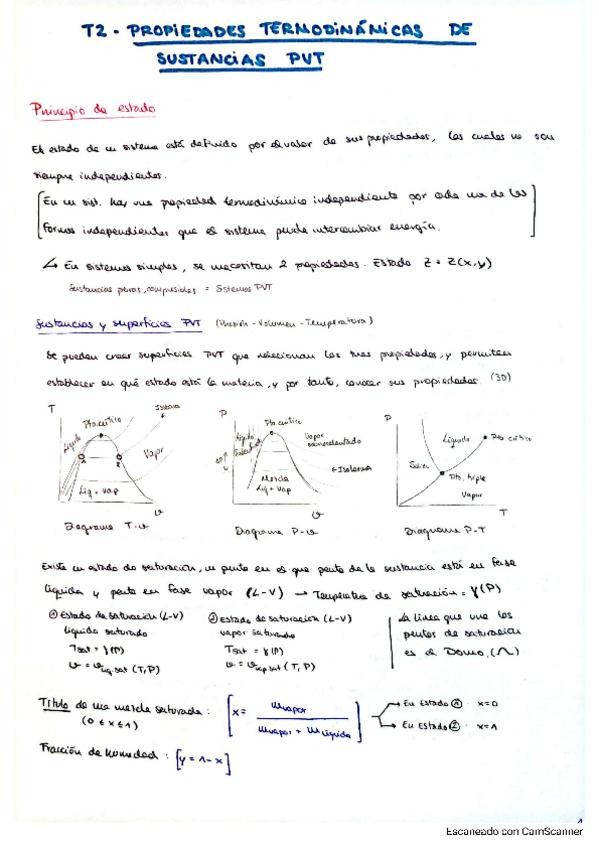 T2 - PROPIEDADES TERMODINÁMICAS DE
SUSTANCIAS PVT
Principio de estado
El estado de un sistema está definido por el valor de sus propiedades, las cuales no son
siempre independientes.
En un sist. hay una propiedad termodinámica independiente por cada una de las
formas independientes que el sistema pueda intercambiar energía.
↳ En sistemas simples, se necesitan 2 propiedades. Estado Z = Z(x,y)
Sustancias puras, compresibles = Sistemas PVT
Sustancias y superficies PVT (Presión - Volumen - Temperatura)
Se pueden crear superficies PVT que relacionan las tres propiedades, y permiten
establecer en qué estado está la materia, y por tanto, conocer sus propiedades. (3D)
T
Pto. crítico
Isobara
Líquido
Vapor
Liq + Vap
v
Diagrama T-v
P
Pto. crítico
Líquido
Vapor
sobrecalentado
Isoterma
Mezcla
Liq + Vap
v
Diagrama P-v
P
Líquido
Pto crítico
Pto. triple
Vapor
T
Diagrama P-T
Existe un estado de saturación, un punto en el que parte de la sustancia está en fase
líquida y parte en fase vapor (L-V) → Temperatura de saturación = f(P)
① Estado de saturación (L-V)
líquido saturado
Tsat = f(P)
v = vliq.sat (T, P)
② Estado de saturación (L-V)
vapor saturado
Tsat = f(P)
v = vvap.sat (T, P)
La línea que une los
puntos de saturación
es el Domo, (Λ)
Título de una mezcla saturada : [x = mvapor / mvapor + mlíquido]
(0 ≤ x ≤ 1)
→ En Estado ① · x=0
→ En Estado ② · x=1
Fracción de humedad : [y = 1 - x]
1
Escaneado con CamScanner